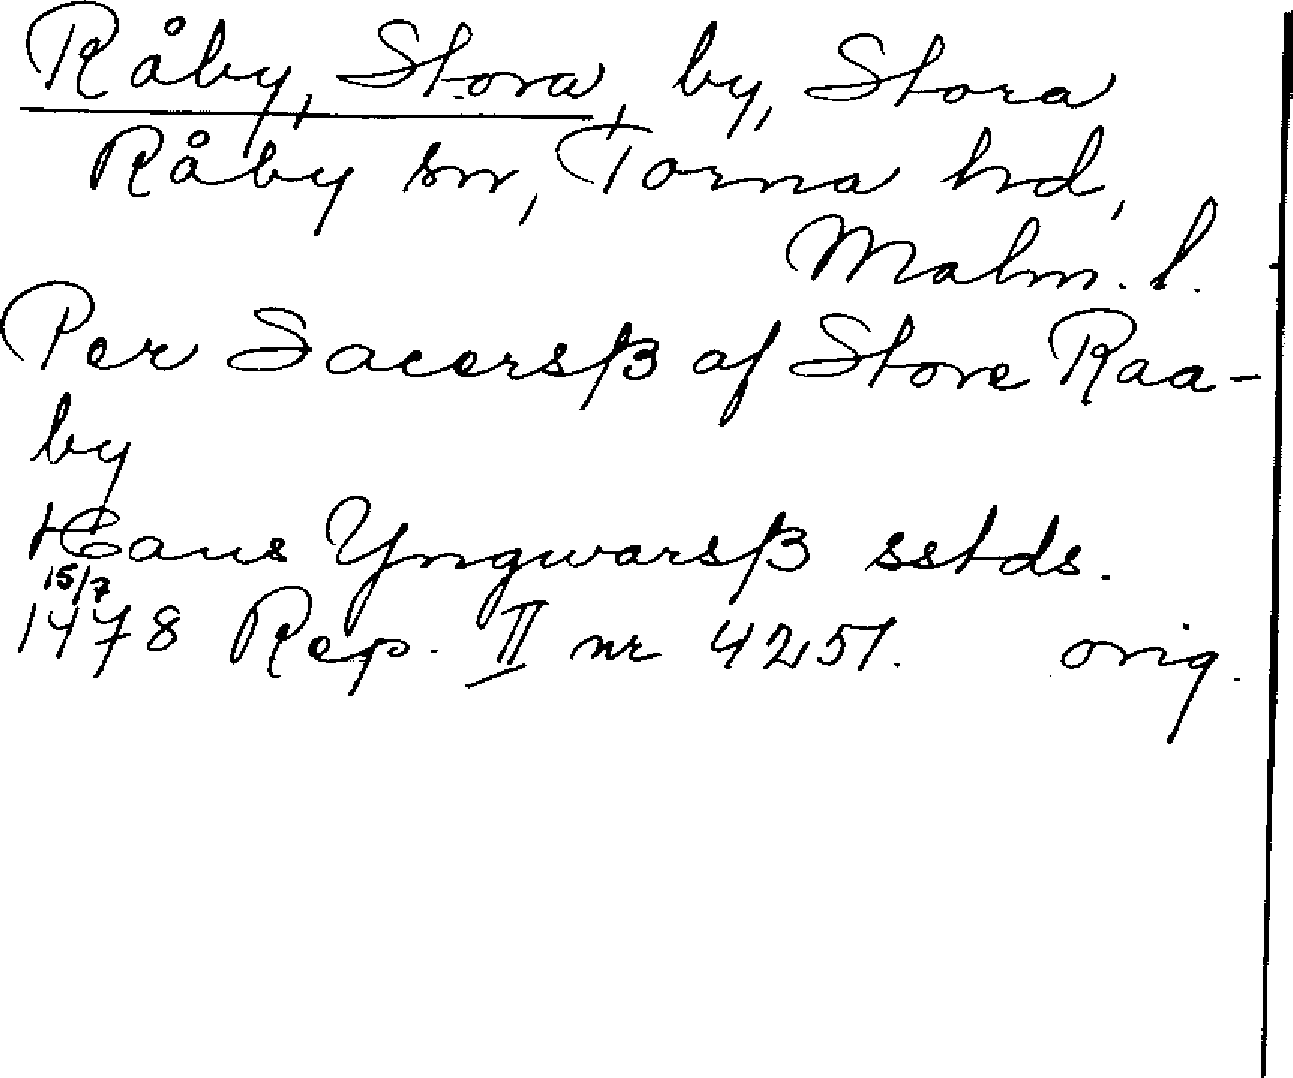 Råby, Stora, by, Stora
Råby sn, Torna hd,
Malm. l.
Per Sacersß af Store Raa-
by
Hans Yngwarsß sstds.
15/7
1478 Rep. II nr 4251. orig.